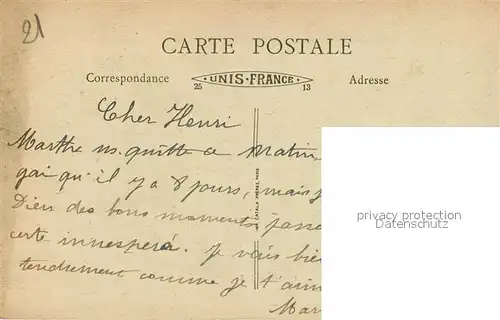 21
CARTE POSTALE
Correspondance
UNIS-FRANCE
25 13
Adresse
Cher Henri
Marthe ns. quitte ce matin
gai qu'il y a 8 jours, mais
Dieu des bons moments passé
certe innespéré. Je vais bie
tendrement comme je t'aim
Mar
CATALA FRÈRES, PARIS
privacy protection
Datenschutz